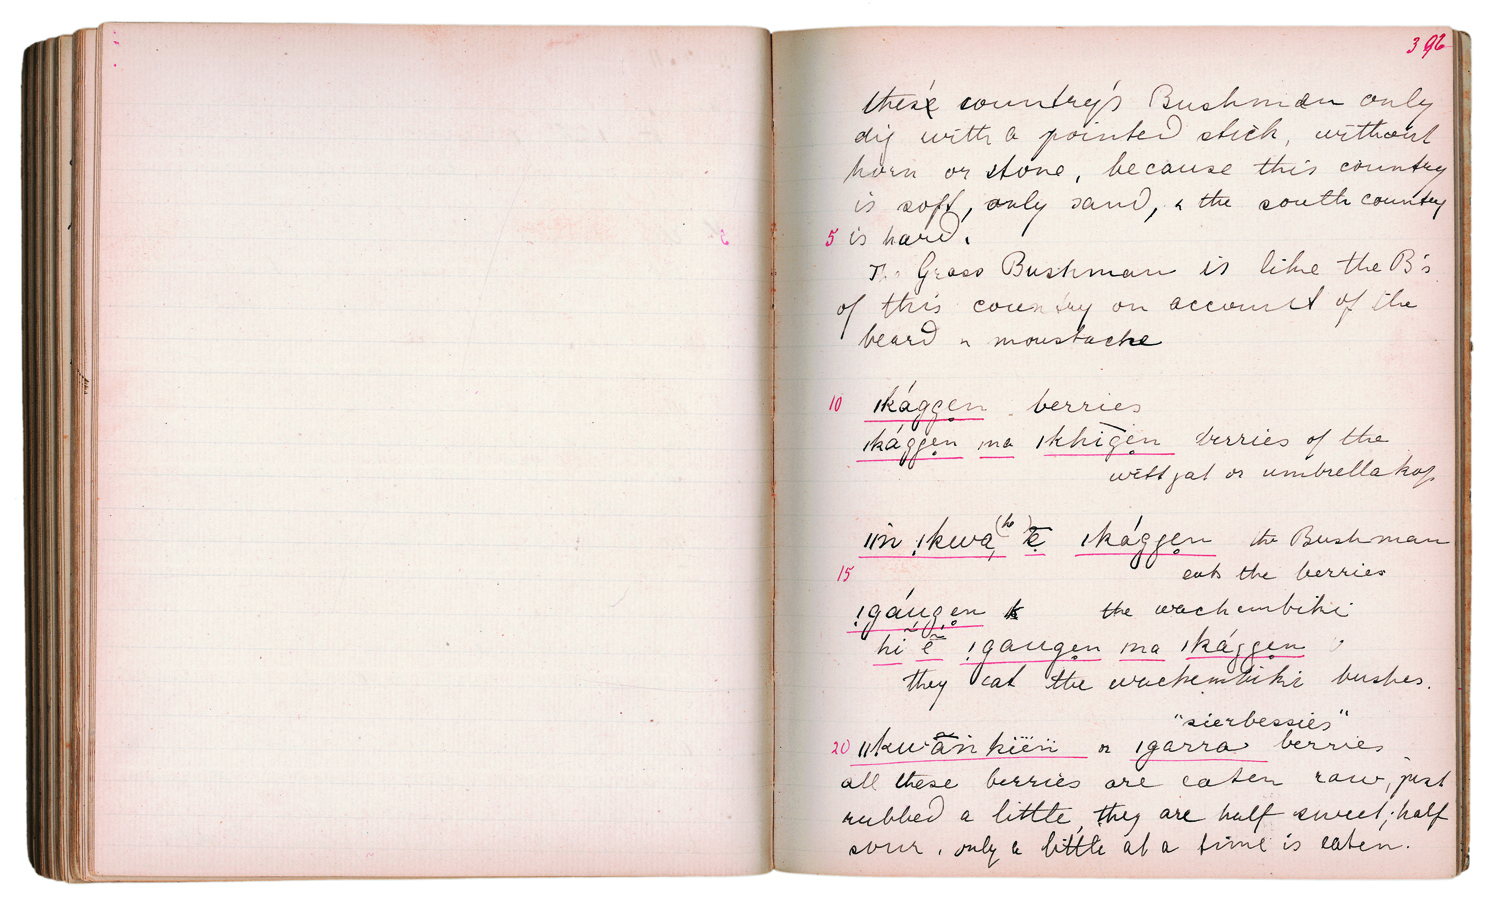 396
these country's Bushman only
dig with a pointed stick, without
horn or stone, because this country
is soft, only sand, & the south country
5 is hard.
The Grass Bushman is like the B's
of this country on account of the
beard & moustache
10 ǀkággen berries
ǀkággen ma ǀkhīgen berries of the
wittgat or umbrella kop
ǁn̄ ǃkwa (ho) ē ǀkággen the Bushman
15 eats the berries
ǃgáugen the wachembiki
hī ẽ ǃgaugen ma ǀkággen
they eat the wachembikki bushes.
"sierbessies"
20 ǁkwān kïëïï & ǀgarra berries
all these berries are eaten raw, just
rubbed a little, they are half sweet; half
sour, only a little at a time is eaten.